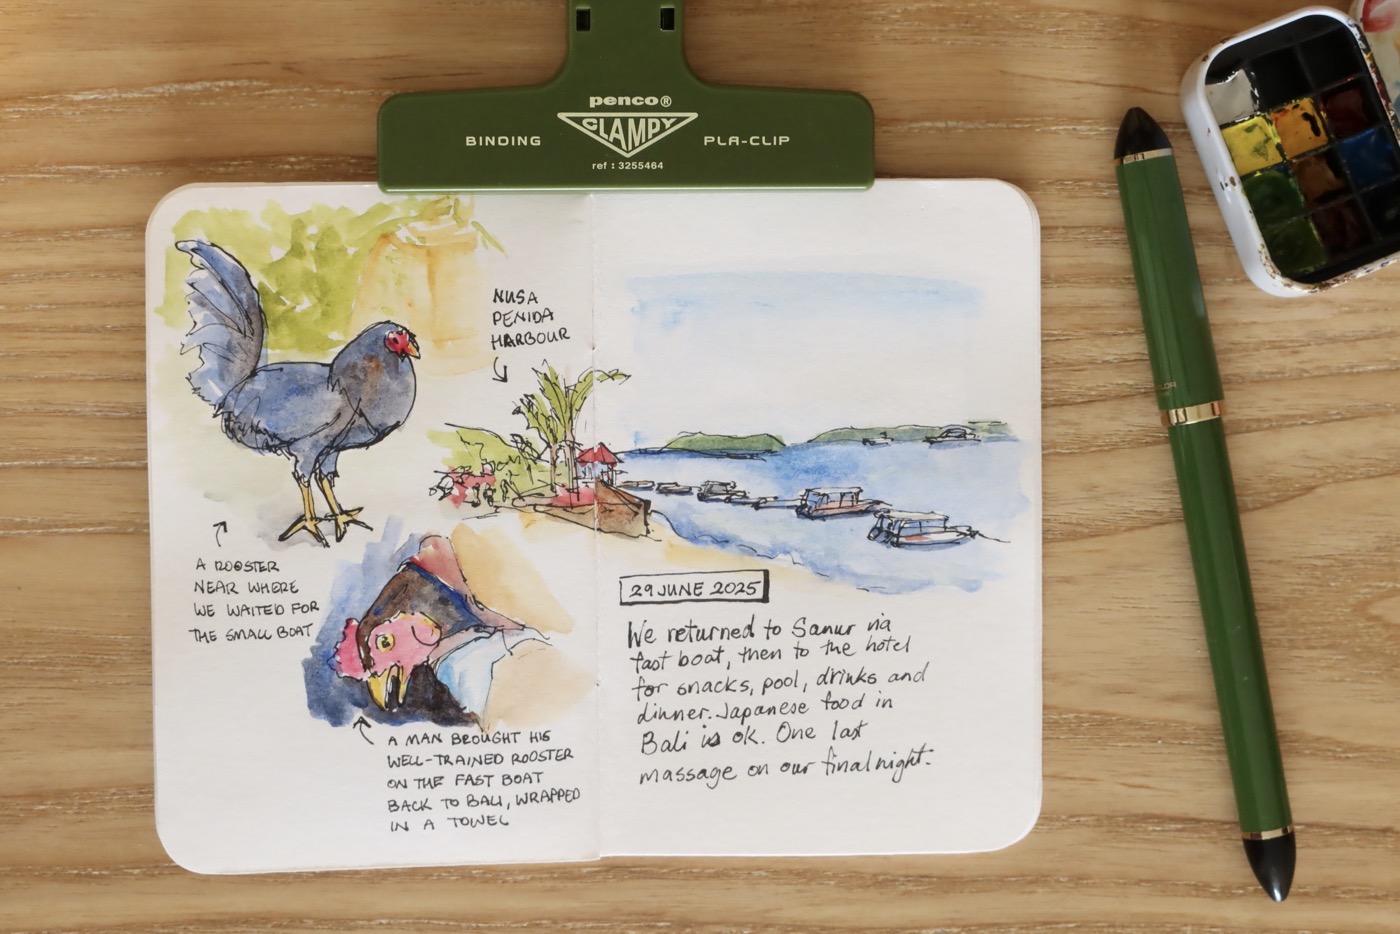 penco®
CLAMPY
BINDING
PLA-CLIP
ref : 3255464
NUSA
PENIDA
HARBOUR
A ROOSTER
NEAR WHERE
WE WAITED FOR
THE SMALL BOAT
A MAN BROUGHT HIS
WELL-TRAINED ROOSTER
ON THE FAST BOAT
BACK TO BALI, WRAPPED
IN A TOWEL
29 JUNE 2025
We returned to Sanur via
fast boat, then to the hotel
for snacks, pool, drinks and
dinner. Japanese food in
Bali is ok. One last
massage on our final night.